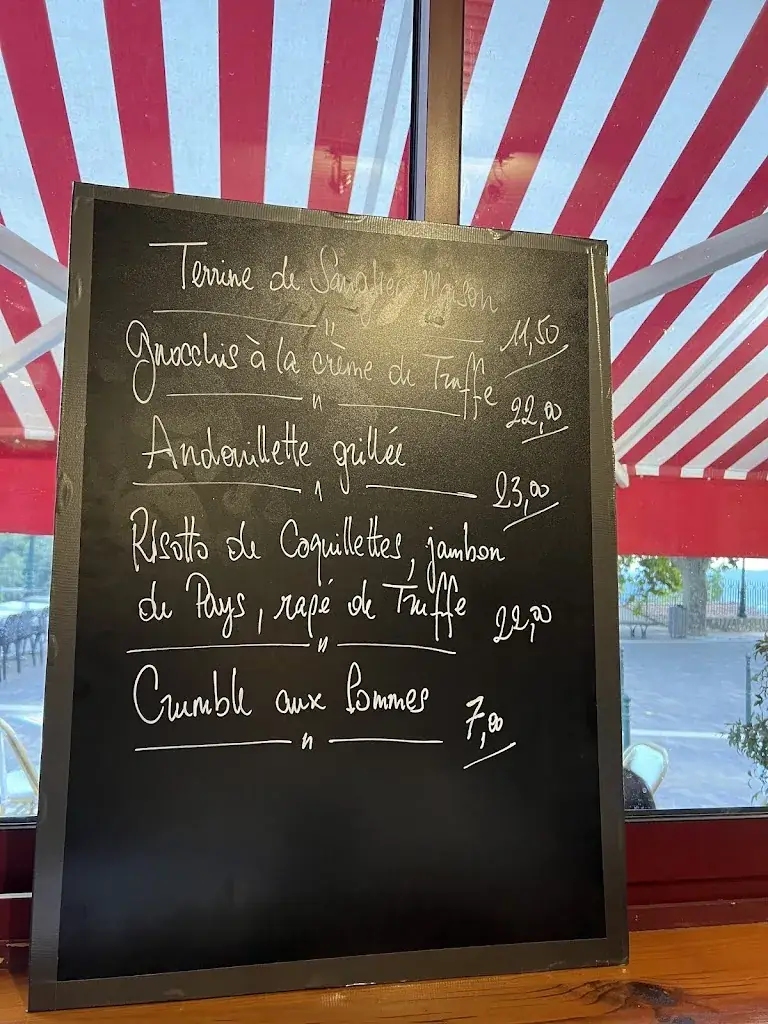 Terrine de Sanglier Maison
11,50
Gnocchis à la crème de Truffe
22,00
Andouillette grillée
23,00
Risotto de Coquillettes, jambon
de Pays, rapé de Truffe
22,00
Crumble aux Pommes
7,00